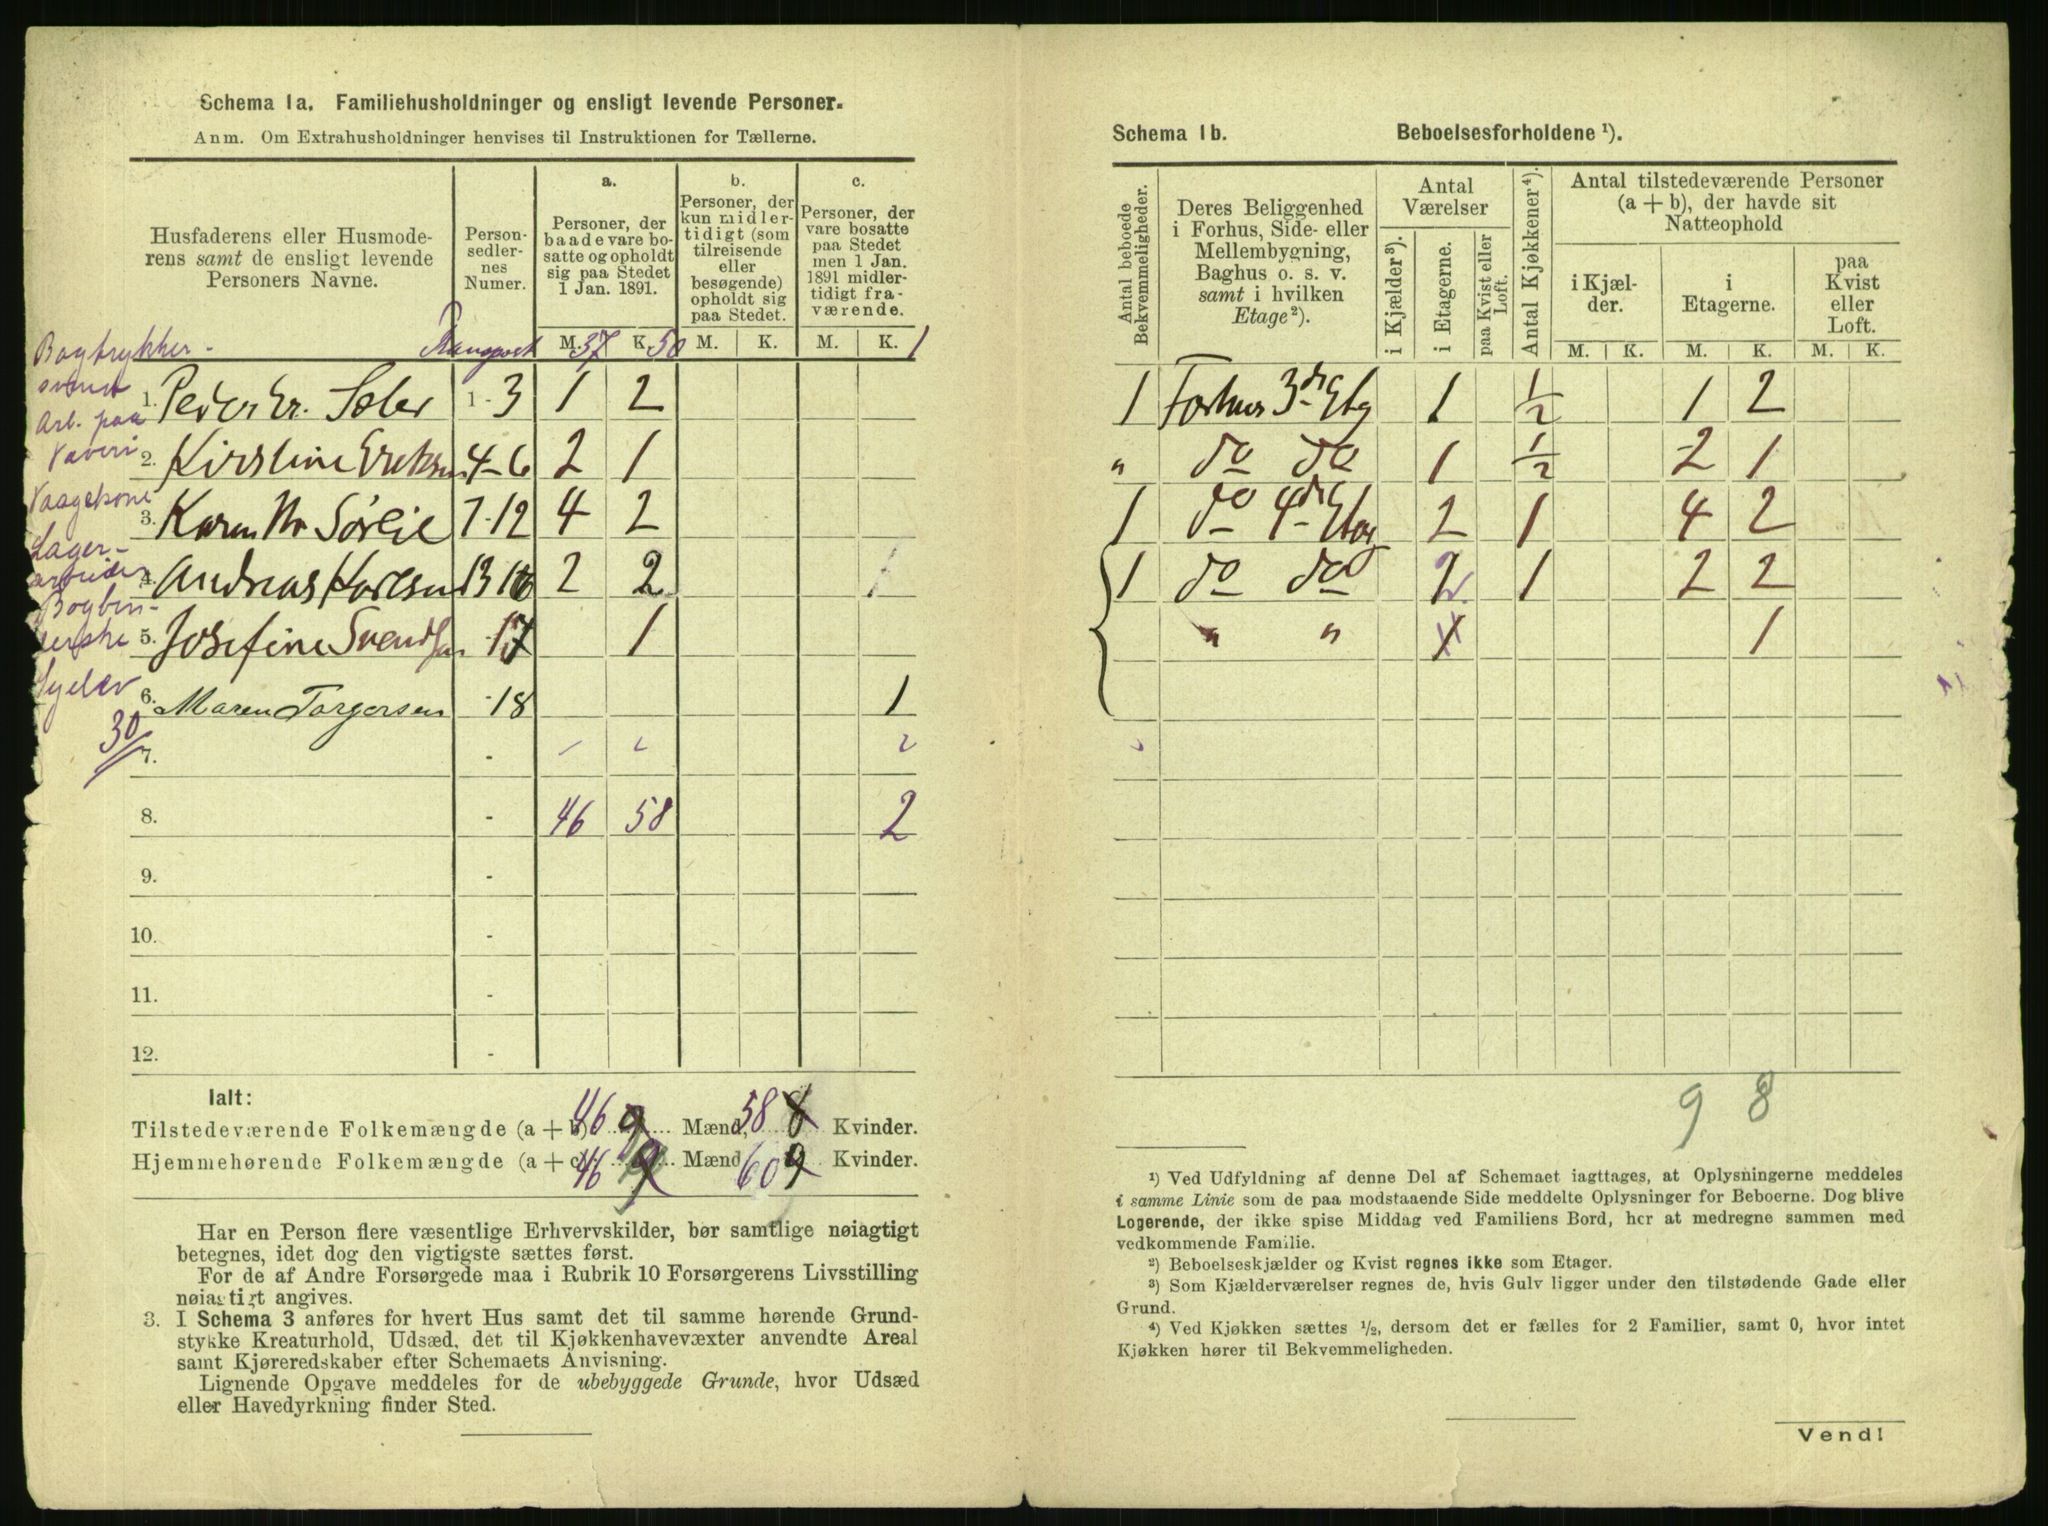 Schema 1a. Familiehusholdninger og ensligt levende Personer.
Anm. Om Extrahusholdninger henvises til Instruktionen for Tællerne.
Husfaderens eller Husmode-
rens samt de ensligt levende
Personers Navne.
Person-
sedler-
nes
Numer.
a.
Personer, der
baade vare bo-
satte og opholdt
sig paa Stedet
1 Jan. 1891.
b.
Personer, der
kun midler-
tidigt (som
tilreisende
eller
besøgende)
opholdt sig
paa Stedet.
c.
Personer, der
vare bosatte
paa Stedet
men 1 Jan.
1891 midler-
tidigt fra-
værende.
Transport M. 37 K. 50 M. K. M. K. 1
Bogtrykker-
svend
1. Peder Chr. 1-3 1 2
Arb. paa
Væveri
2. Kirstine Eriksen 4-6 2 1
Vaagekone
3. Karen M. Sørlie 7-12 4 2
Lager-
arbeider
4. Andreas Karlsen 13-16 2 2
Bogbin-
derske
5. Josefine Svendsen -17 1
Syelev
6. Maren Torgersen -18 1
30
7. -
8. - 46 58 2
9. -
10. -
11. -
12. -
Ialt:
Tilstedeværende Folkemængde (a+b) 46 9 Mænd, 58 8 Kvinder.
Hjemmehørende Folkemængde (a+c) 46 9 Mænd 60 9 Kvinder.
Har en Person flere væsentlige Erhvervskilder, bør samtlige nøiagtigt
betegnes, idet dog den vigtigste sættes først.
For de af Andre Forsørgede maa i Rubrik 10 Forsørgerens Livsstilling
nøiagtigt angives.
3. I Schema 3 anføres for hvert Hus samt det til samme hørende Grund-
stykke Kreaturhold, Udsæd, det til Kjøkkenhavevæxter anvendte Areal
samt Kjøreredskaber efter Schemaets Anvisning.
Lignende Opgave meddeles for de ubebyggede Grunde, hvor Udsæd
eller Havedyrkning finder Sted.
Schema 1b. Beboelsesforholdene ¹).
Antal beboede
Bekvemmeligheder.
Deres Beliggenhed
i Forhus, Side- eller
Mellembygning,
Baghus o. s. v.
samt i hvilken
Etage²).
Antal
Værelser
i Kjælder³).
i Etagerne.
paa Kvist eller
Loft.
Antal Kjøkkener⁴).
Antal tilstedeværende Personer
(a+b), der havde sit
Natteophold
i Kjæl-
der.
i
Etagerne.
paa
Kvist
eller
Loft.
M. K. M. K. M. K.
1 Forhus 3die Etg 1 1/2 1 2
" do do 1 1/2 2 1
1 do 4die Etag 2 1 4 2
1 do do 2 1 2 2
" " 1
9 8
¹) Ved Udfyldning af denne Del af Schemaet iagttages, at Oplysningerne meddeles
i samme Linie som de paa modstaaende Side meddelte Oplysninger for Beboerne. Dog blive
Logerende, der ikke spise Middag ved Familiens Bord, her at medregne sammen med
vedkommende Familie.
²) Beboelseskjælder og Kvist regnes ikke som Etager.
³) Som Kjælderværelser regnes de, hvis Gulv ligger under den tilstødende Gade eller
Grund.
⁴) Ved Kjøkken sættes ½, dersom det er fælles for 2 Familier, samt 0, hvor intet
Kjøkken hører til Bekvemmeligheden.
Vend!